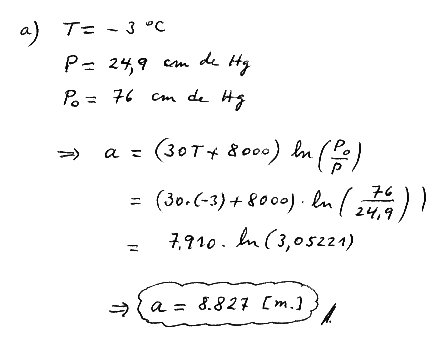 a) T = - 3 °C
P = 24,9 cm de Hg
P₀ = 76 cm de Hg
⇒ a = (30T + 8000) ln (P₀/P)
= (30.(-3) + 8000) . ln (76/24,9))
= 7.910 . ln (3,05221)
⇒ a = 8.827 [m.]